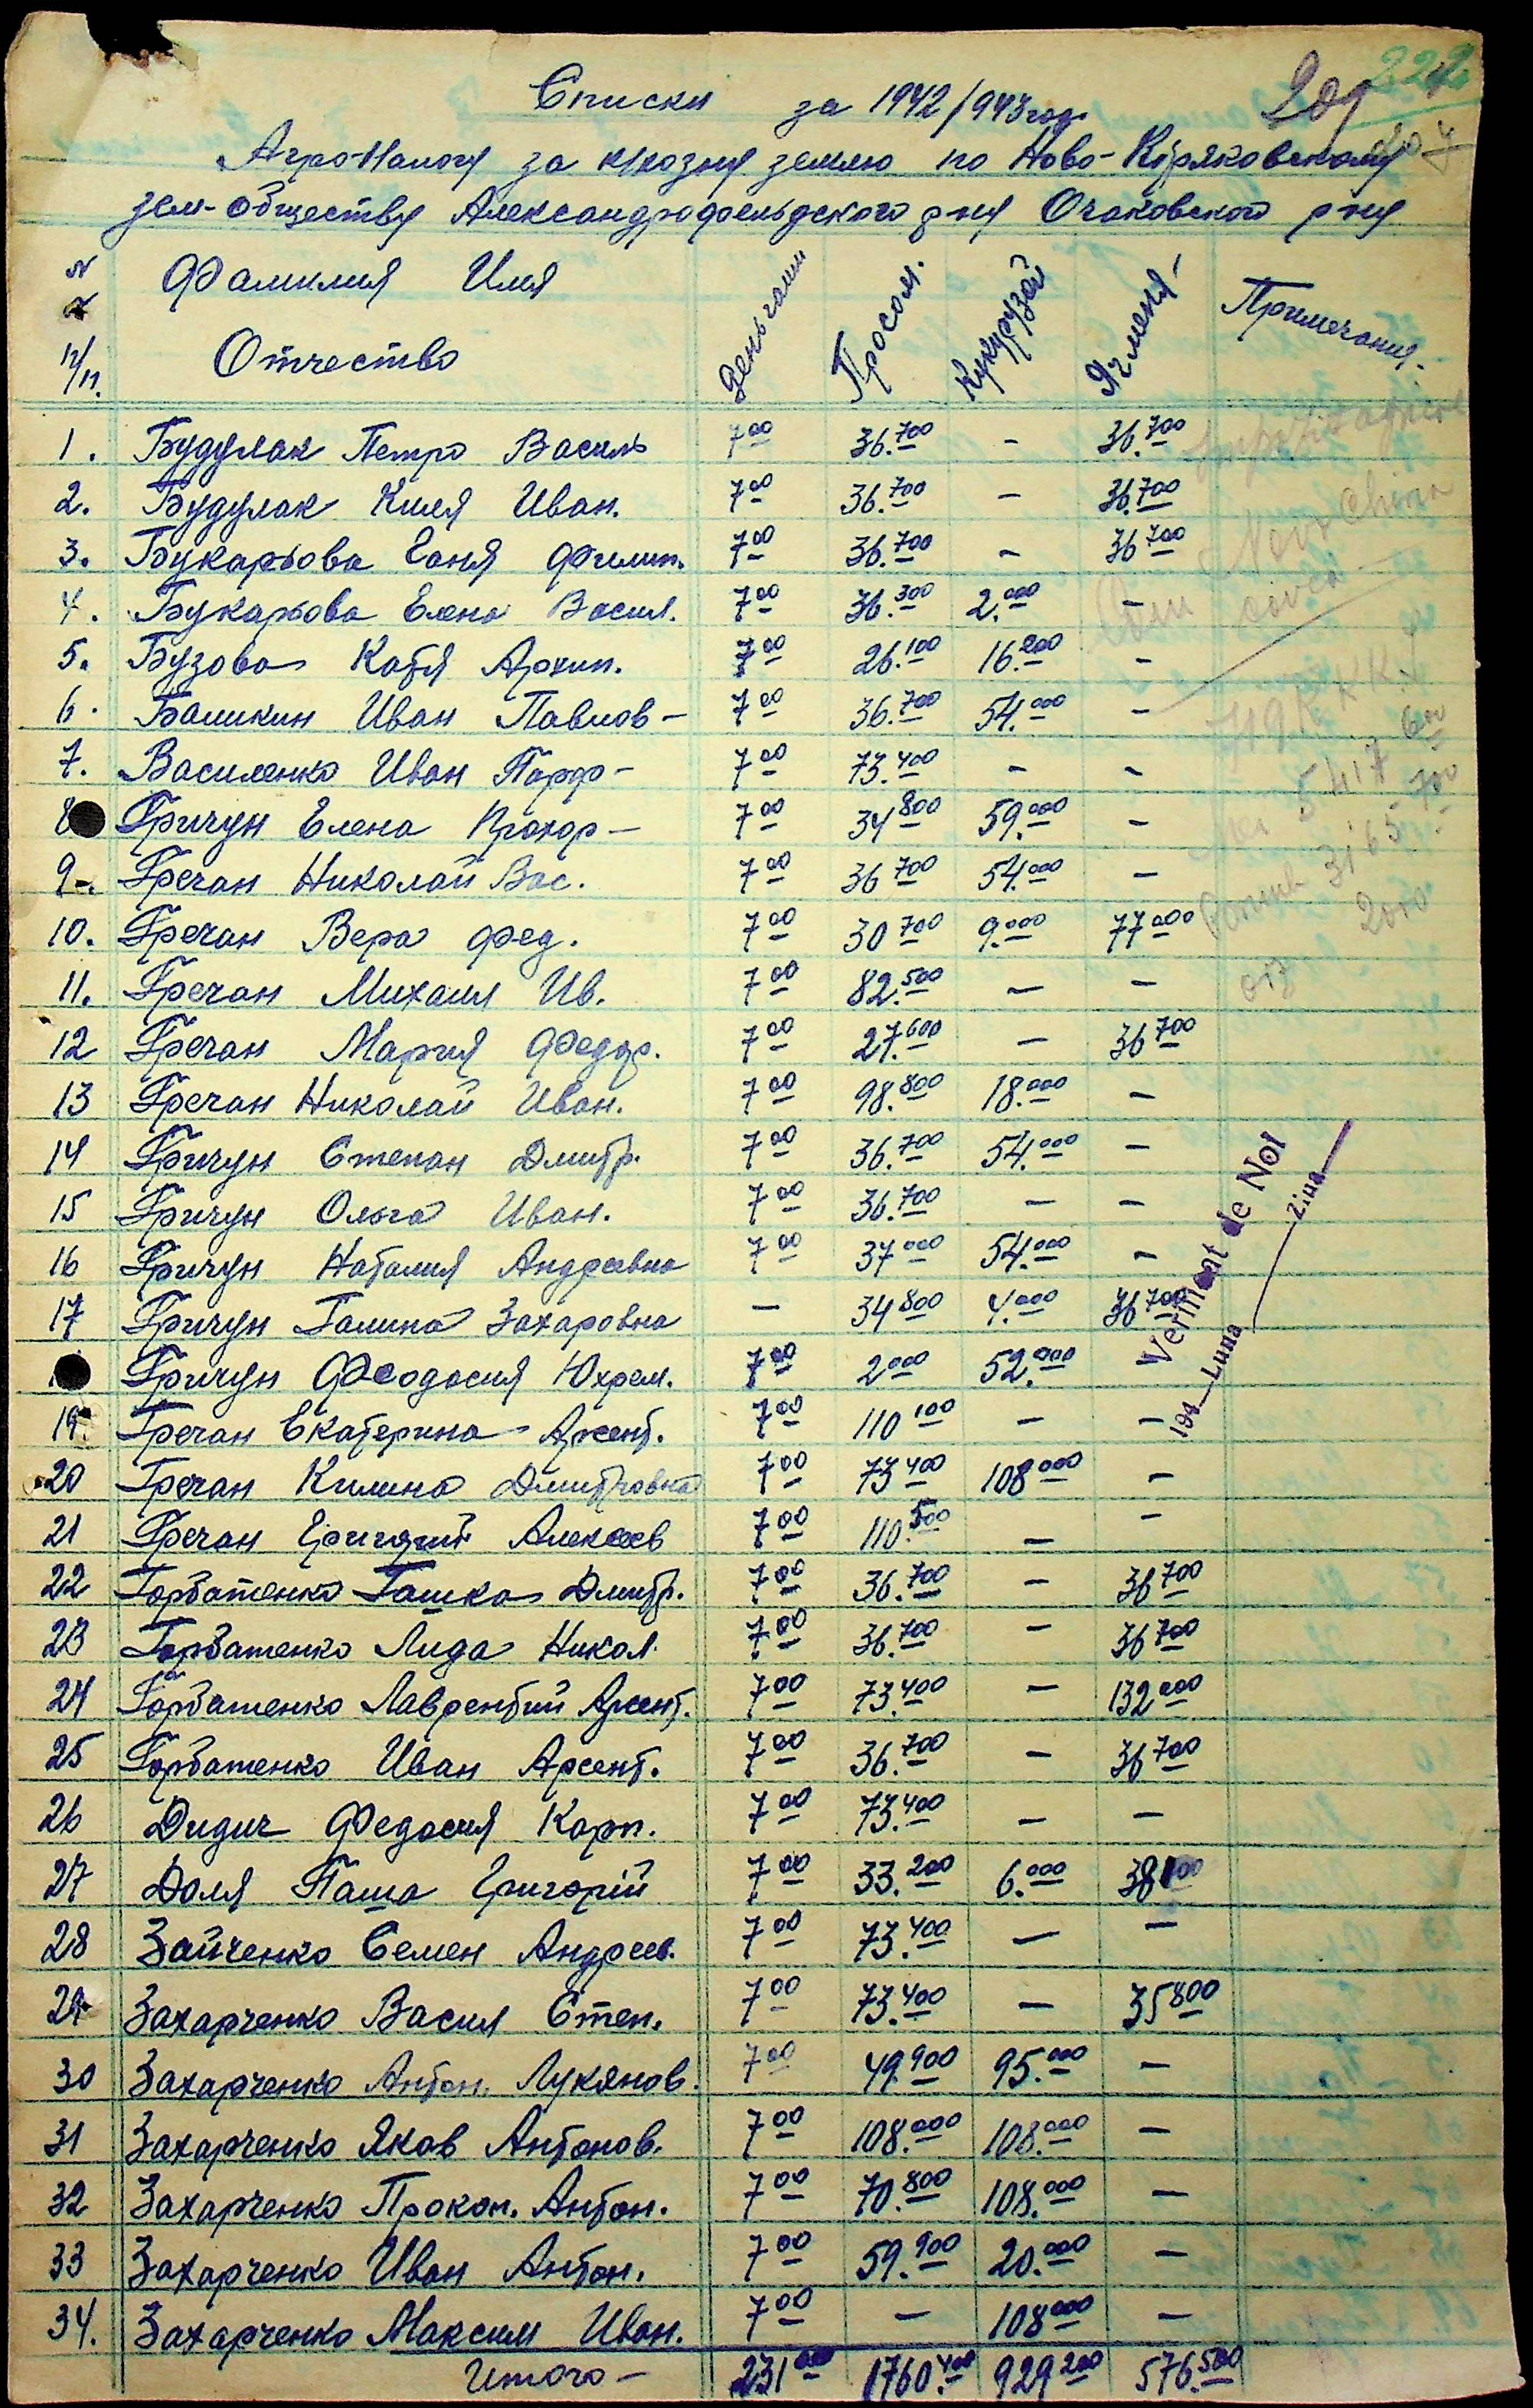 222
209
Списки за 1942/943 год.
Агро-налогу за кукозну землю по Ново-Коряковскому
зем-обществу Александрофельдского р-ну Очаковского р-ну
№ п/п. Фамилия Имя Отчество деньгами Просом. Кукурузой Ячменя- Примечания.
1. Будулак Петро Василь 7 00 36.700 - 36.700
2. Будулак Киля Иван. 7 00 36.700 - 36.700
3. Букарьова Ганя Филип. 7 00 36.700 - 36 700
4. Букарьова Елена Васил. 7 00 36.300 2.000 -
5. Бузова Катя Архип. 7 00 26.100 16.200 -
6. Башкин Иван Павлов- 7 00 36.700 54.000 -
7. Василенко Иван Парф- 7 00 73.400 - -
8 Гричун Елена Прохор- 7 00 34 800 59.000 -
9-. Гречан Николай Вас. 7 00 36 700 54.000 -
10. Гречан Вера Фед. 7 00 30 700 9.000 77 000
11. Гречан Михаил Ив. 7 00 82.500 - -
12 Гречан Мария Федор. 7 00 27.600 - 36 700
13 Гречан Николай Иван. 7 00 98.800 18.000 -
14 Гричун Степан Дмитр. 7 00 36.700 54.000 -
15 Гричун Ольга Иван. 7 00 36.700 - -
16 Гричун Наталия Андреевна 7 00 37 000 54.000 -
17 Гричун Галина Захаровна - 34 800 4.000 36 700
Гричун Феодосия Юхрем. 7 00 2 000 52.000 -
19. Гречан Екатерина Арсент. 7 00 110 100 - -
20 Гречан Килина Дмитровна 7 00 73 400 108 000 -
21 Гречан Григорий Алексеев 7 00 110.500 - -
22 Горбатенко Гашка Дмитр. 7 00 36.700 - 36 700
23 Горбатенко Лида Никол. 7 00 36.700 - 36 700
24 Горбатенко Лаврентий Арсент. 7 00 73.400 - 132 000
25 Горбатенко Иван Арсент. 7 00 36.700 - 36 700
26 Дидич Федосия Карп. 7 00 73.400 - -
27 Доля Паша Григорій 7 00 33.200 6.000
28 Зайченко Семен Андреев. 7 00 73.400 - -
29 Захарченко Васил Степ. 7 00 73.400 - 35 800
30 Захарченко Антон. Лукянов. 7 00 49.900 95.000 -
31 Захарченко Яков Антонов. 7 00 108.000 108.000 -
32 Захарченко Прокоп. Антон. 7 00 70.800 108.000 -
33 Захарченко Иван Антон. 7 00 59.900 20.000 -
34. Захарченко Максим Иван. 7 00 - 108 000 -
Итого - 231 000 1760.400 929 200 576.500
Verificat de Noi
194 Luna Ziua